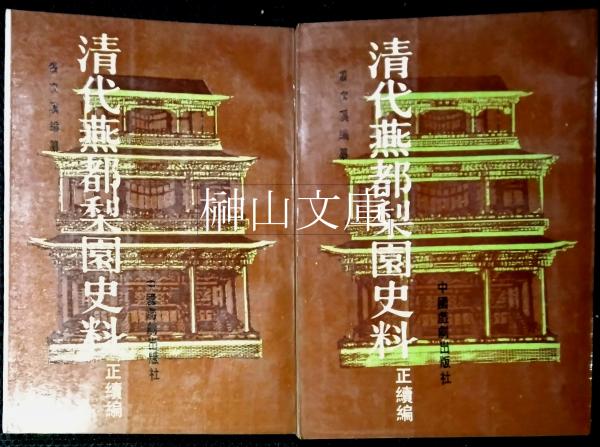 清代燕都梨園史料
正續編
張次溪編纂
中國戲劇出版社
清代燕都梨園史料
正續編
張次溪編纂
中國戲劇出版社
榊山文庫